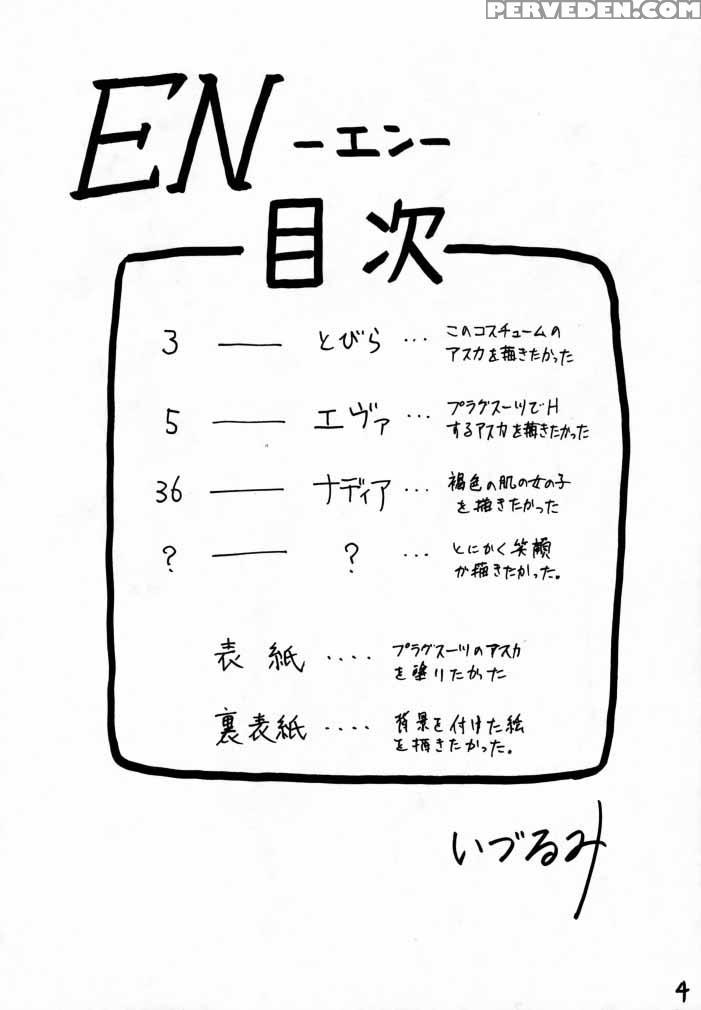 PERVEDEN.COM
EN -エン-
目次
3 ― とびら … このコスチュームの
アスカを描きたかった
5 ― エヴァ … プラグスーツでH
するアスカを描きたかった
36 ― ナディア … 褐色の肌の女の子
を描きたかった
? ― ? … とにかく笑顔
が描きたかった。
表紙 ‥‥ プラグスーツのアスカ
を塗りたかった
裏表紙 ‥‥ 背景を付けた絵
を描きたかった。
いづるみ
4